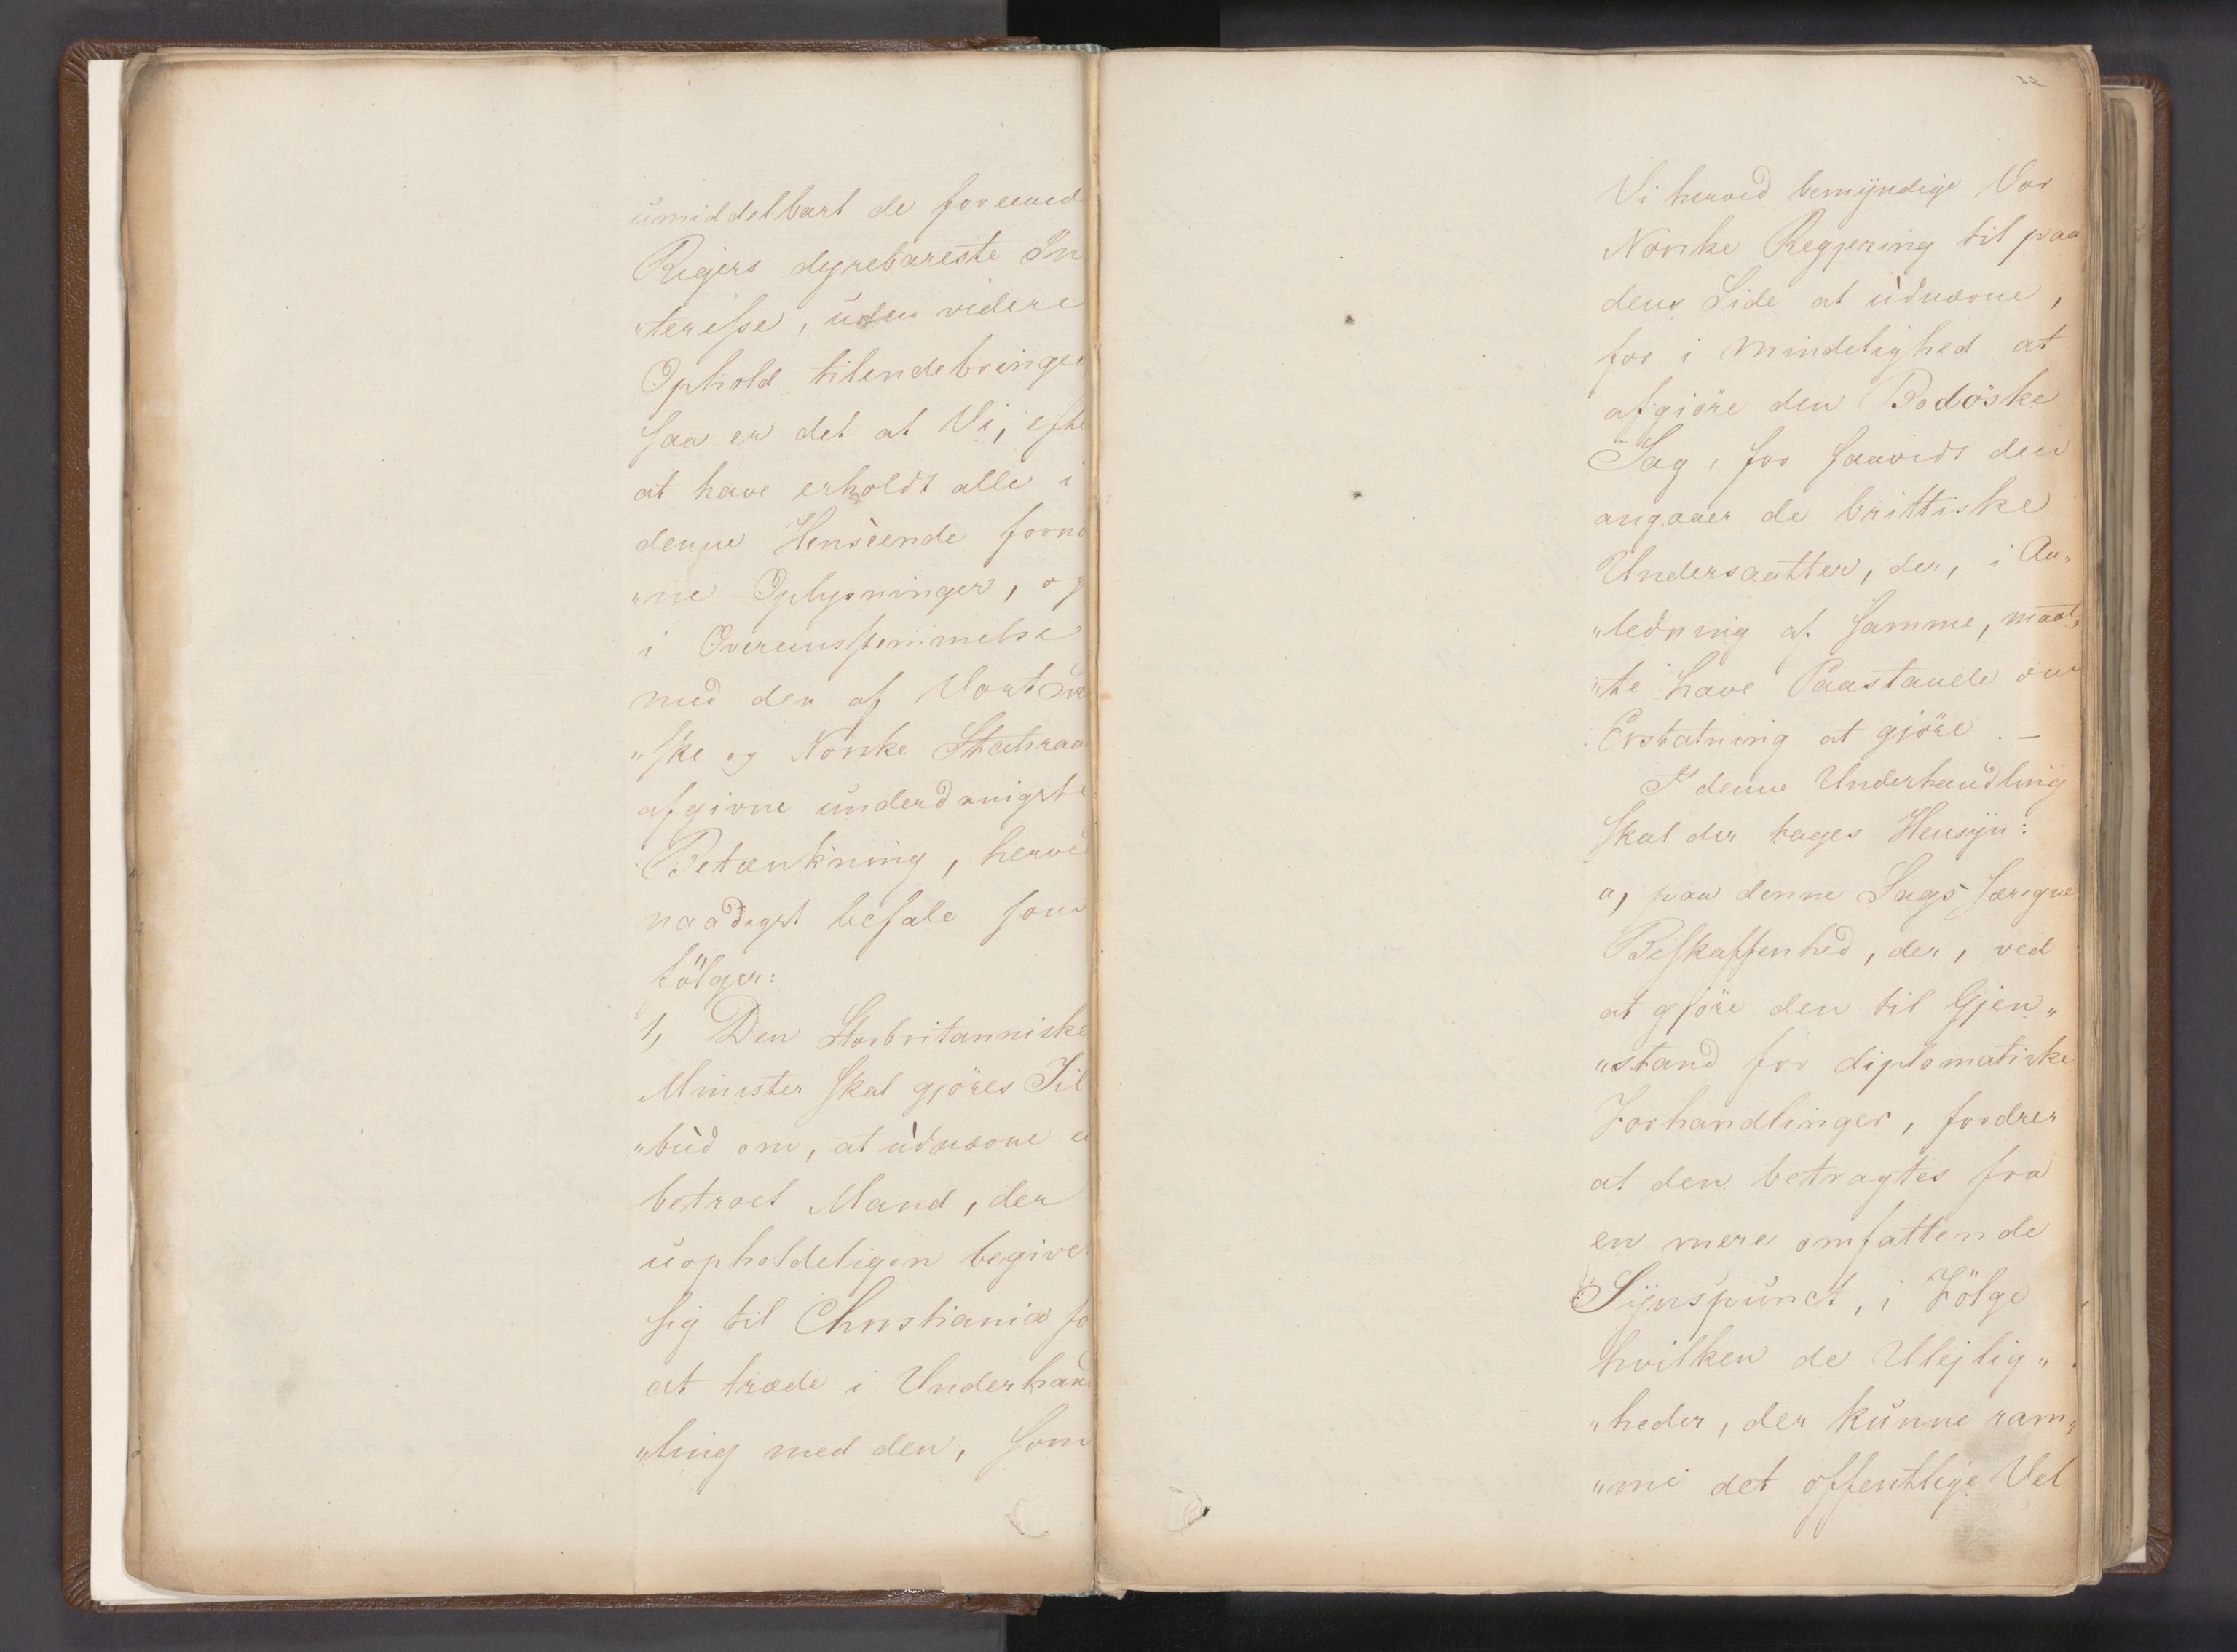 umiddelbart de foreened
Rigers dyrebareste In
"teresse, uden videre
Ophold tilendebringes
saa er det at Vi, efte
at have erholdt alle i
denne Henseende fornø
"ne Oplysninger, og
i Overeensstemmelse
med den af Vort Sve
"ske og Norske Statsraa
afgivne underdanigste
Betænkning, herved
naadigst befale som
fölger:
1, Den Storbritanniske
Minister skal gjöres Til
"bud om, at udnævne e
betroet Mand, der
uopholdeligen begiver
sig til Christiania fo
at træde i Underhand
"ling med den, som
32
Vi herved bemyndige Vor
Norske Regjering til paa
dens Side at udnævne,
for i Mindelighed at
afgiöre den Bodöske
Sag, for saavidt den
angaaer de brittiske
Undersaatter, der, i An„
"ledning af samme, maat„
"te have Paastande om
Erstatning at gjöre. —
I denne Underhandling
skal der tages Hensyn:
a, paa denne Sags særegne
Beskaffenhed, der, ved
at gjöre den til Gjen„
"stand for diplomatiske
Forhandlinger, fordrer
at den betragtes fra
en mere omfattende
Synspunct, i Fölge
hvilken de Ulejlig„
"heder, der kunne ram„
"me det offentlige Vel